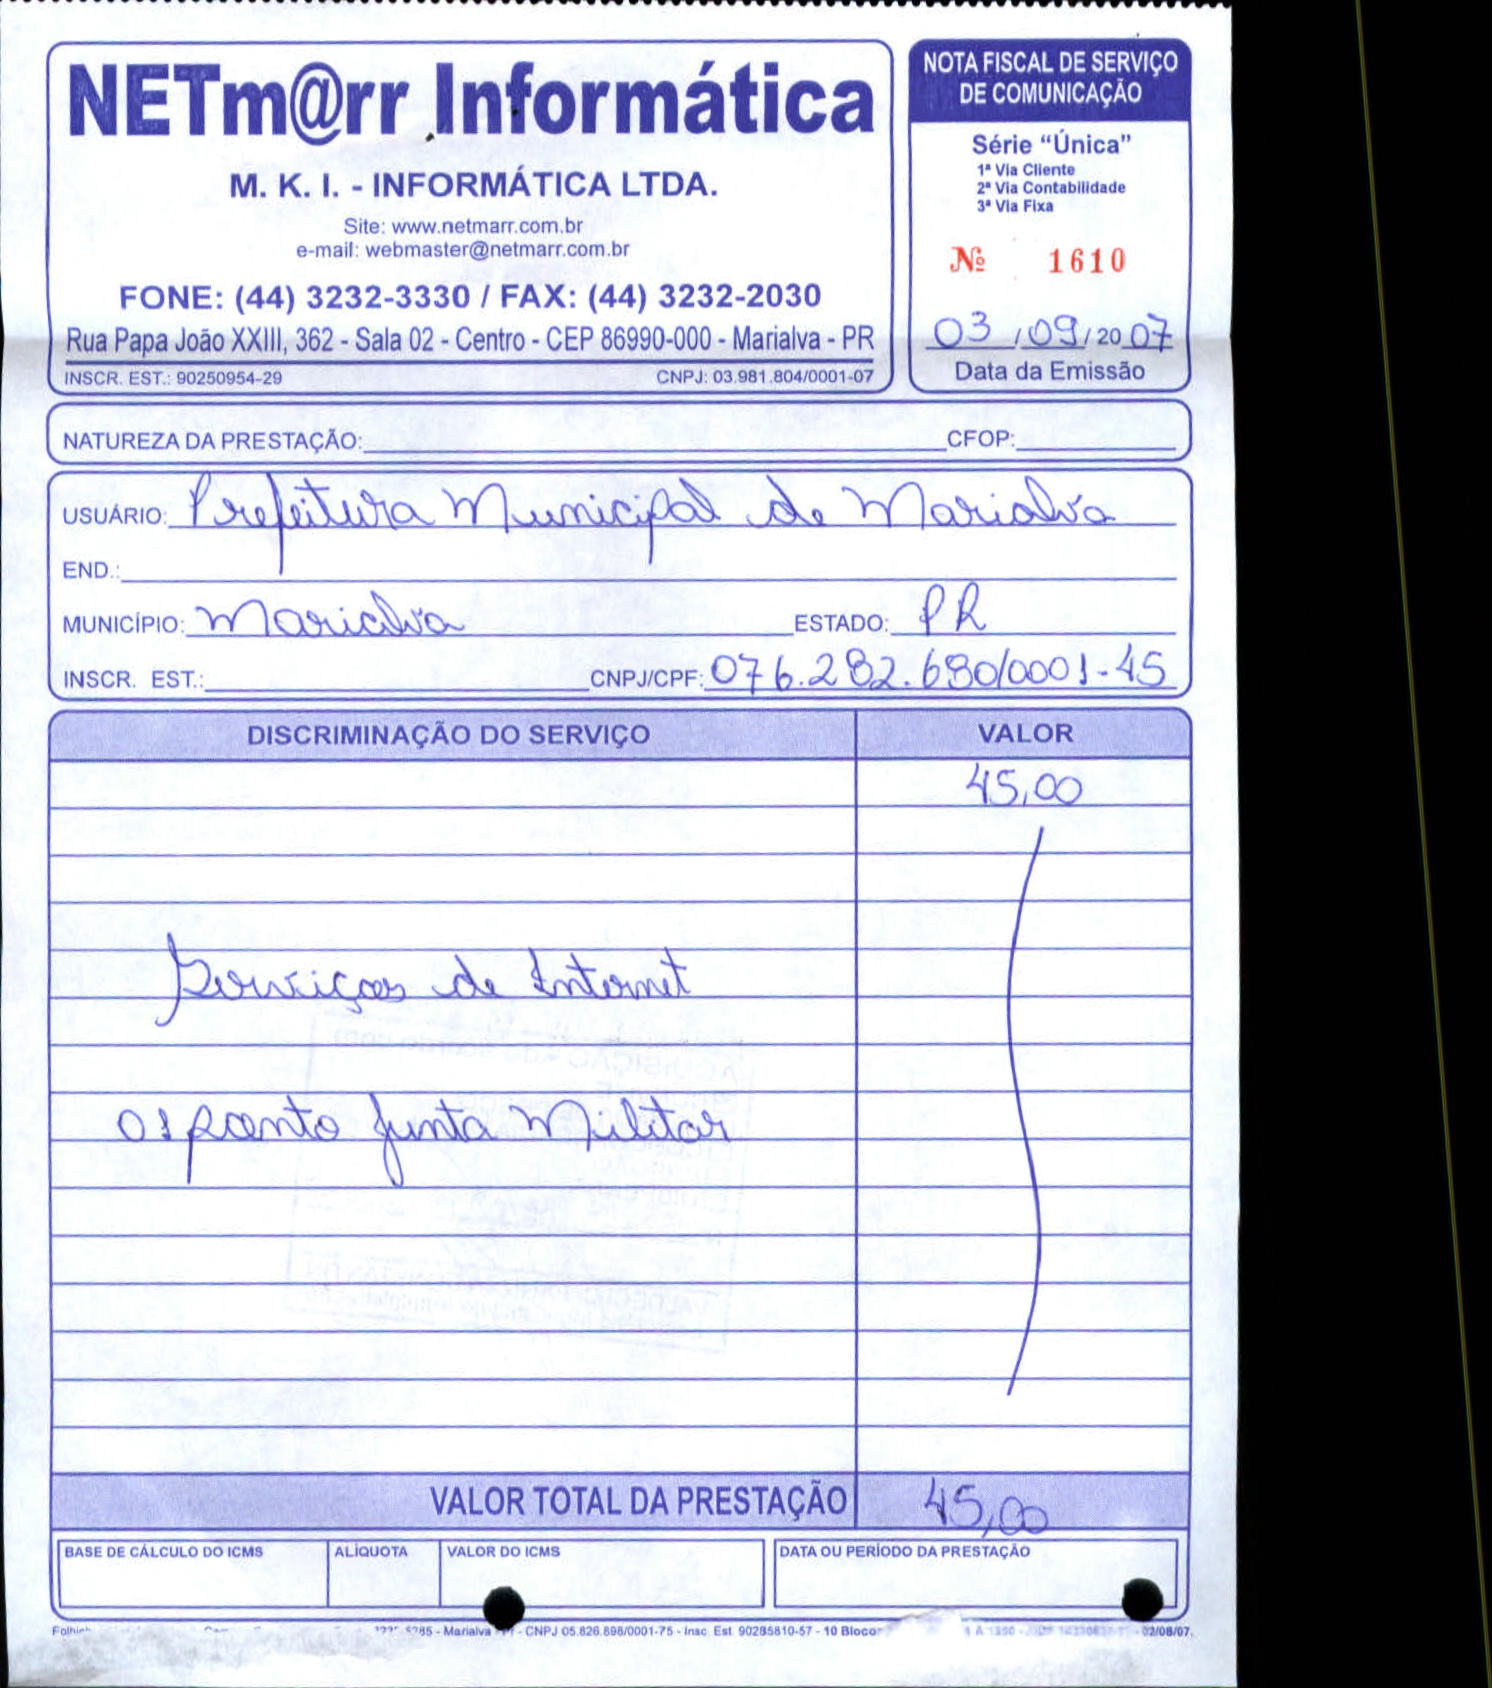 NETm@rr Informática
M. K. I. - INFORMÁTICA LTDA.
Site: www.netmarr.com.br
e-mail: webmaster@netmarr.com.br
FONE: (44) 3232-3330 / FAX: (44) 3232-2030
Rua Papa João XXIII, 362 - Sala 02 - Centro - CEP 86990-000 - Marialva - PR
INSCR. EST.: 90250954-29 CNPJ: 03.981.804/0001-07
NOTA FISCAL DE SERVIÇO
DE COMUNICAÇÃO
Série “Única”
1ª Via Cliente
2ª Via Contabilidade
3ª Via Fixa
Nº 1610
03/09/2007
Data da Emissão
NATUREZA DA PRESTAÇÃO: CFOP:
USUÁRIO: Prefeitura Municipal de Marialva
END.:
MUNICÍPIO: Marialva ESTADO: PR
INSCR. EST.: CNPJ/CPF: 076.282.680/0001-45
DISCRIMINAÇÃO DO SERVIÇO VALOR
45,00
Serviços de Internet
01 ponto Junta Militar
VALOR TOTAL DA PRESTAÇÃO 45,00
BASE DE CÁLCULO DO ICMS ALÍQUOTA VALOR DO ICMS DATA OU PERÍODO DA PRESTAÇÃO
5285 - Marialva - CNPJ 05.826.898/0001-75 - Insc. Est. 90285810-57 - 10 Blocos - 02/08/07.